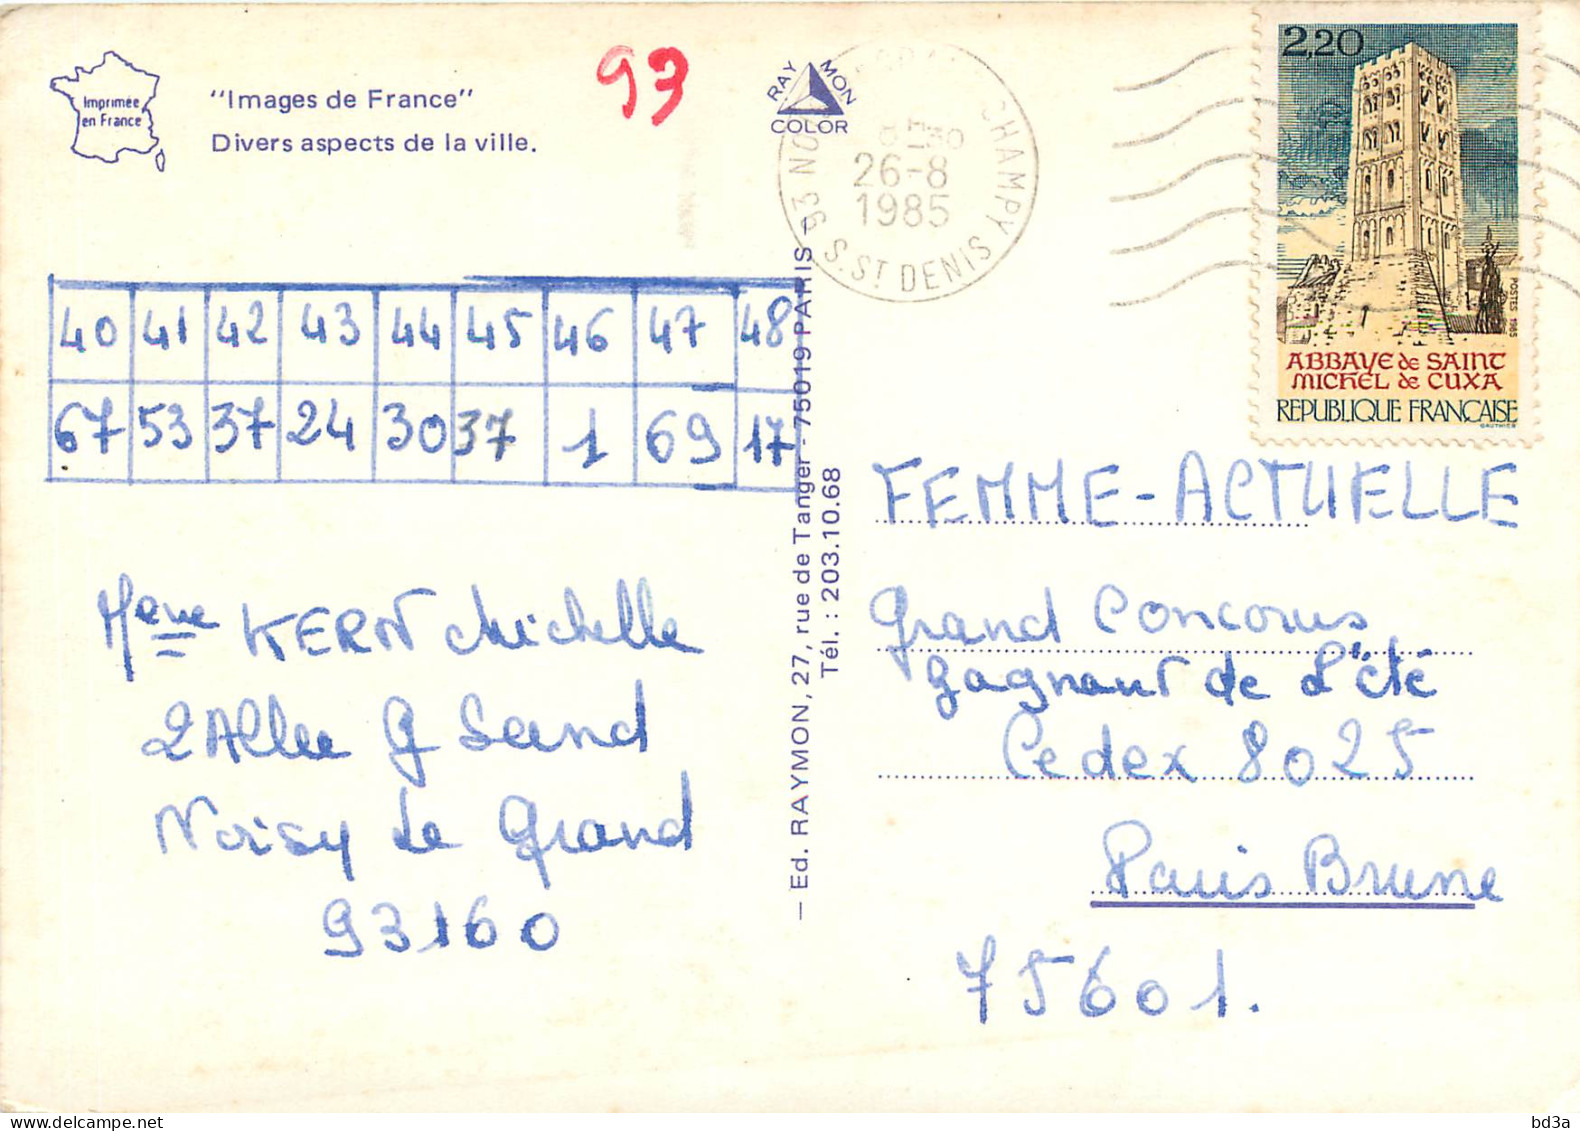 Imprimée
en France
"Images de France"
Divers aspects de la ville.
93
RAYMON
COLOR
CHAMPY
26-8
1985
93 S. ST DENIS
2,20
POSTES 1985
ABBAYE de SAINT
MICHEL de CUXA
REPUBLIQUE FRANÇAISE
GAUTHIER
40 41 42 43 44 45 46 47 48
67 53 37 24 30 37 1 69 17
Mme KERN Michelle
2 Allee G Sand
Noisy Le Grand
93160
— Ed. RAYMON, 27, rue de Tanger - 75019 PARIS —
Tél. : 203.10.68
FEMME-ACTUELLE
Grand Concours
Gagnant de l'été
Cedex 8025
Paris Brune
75601.
bd3a